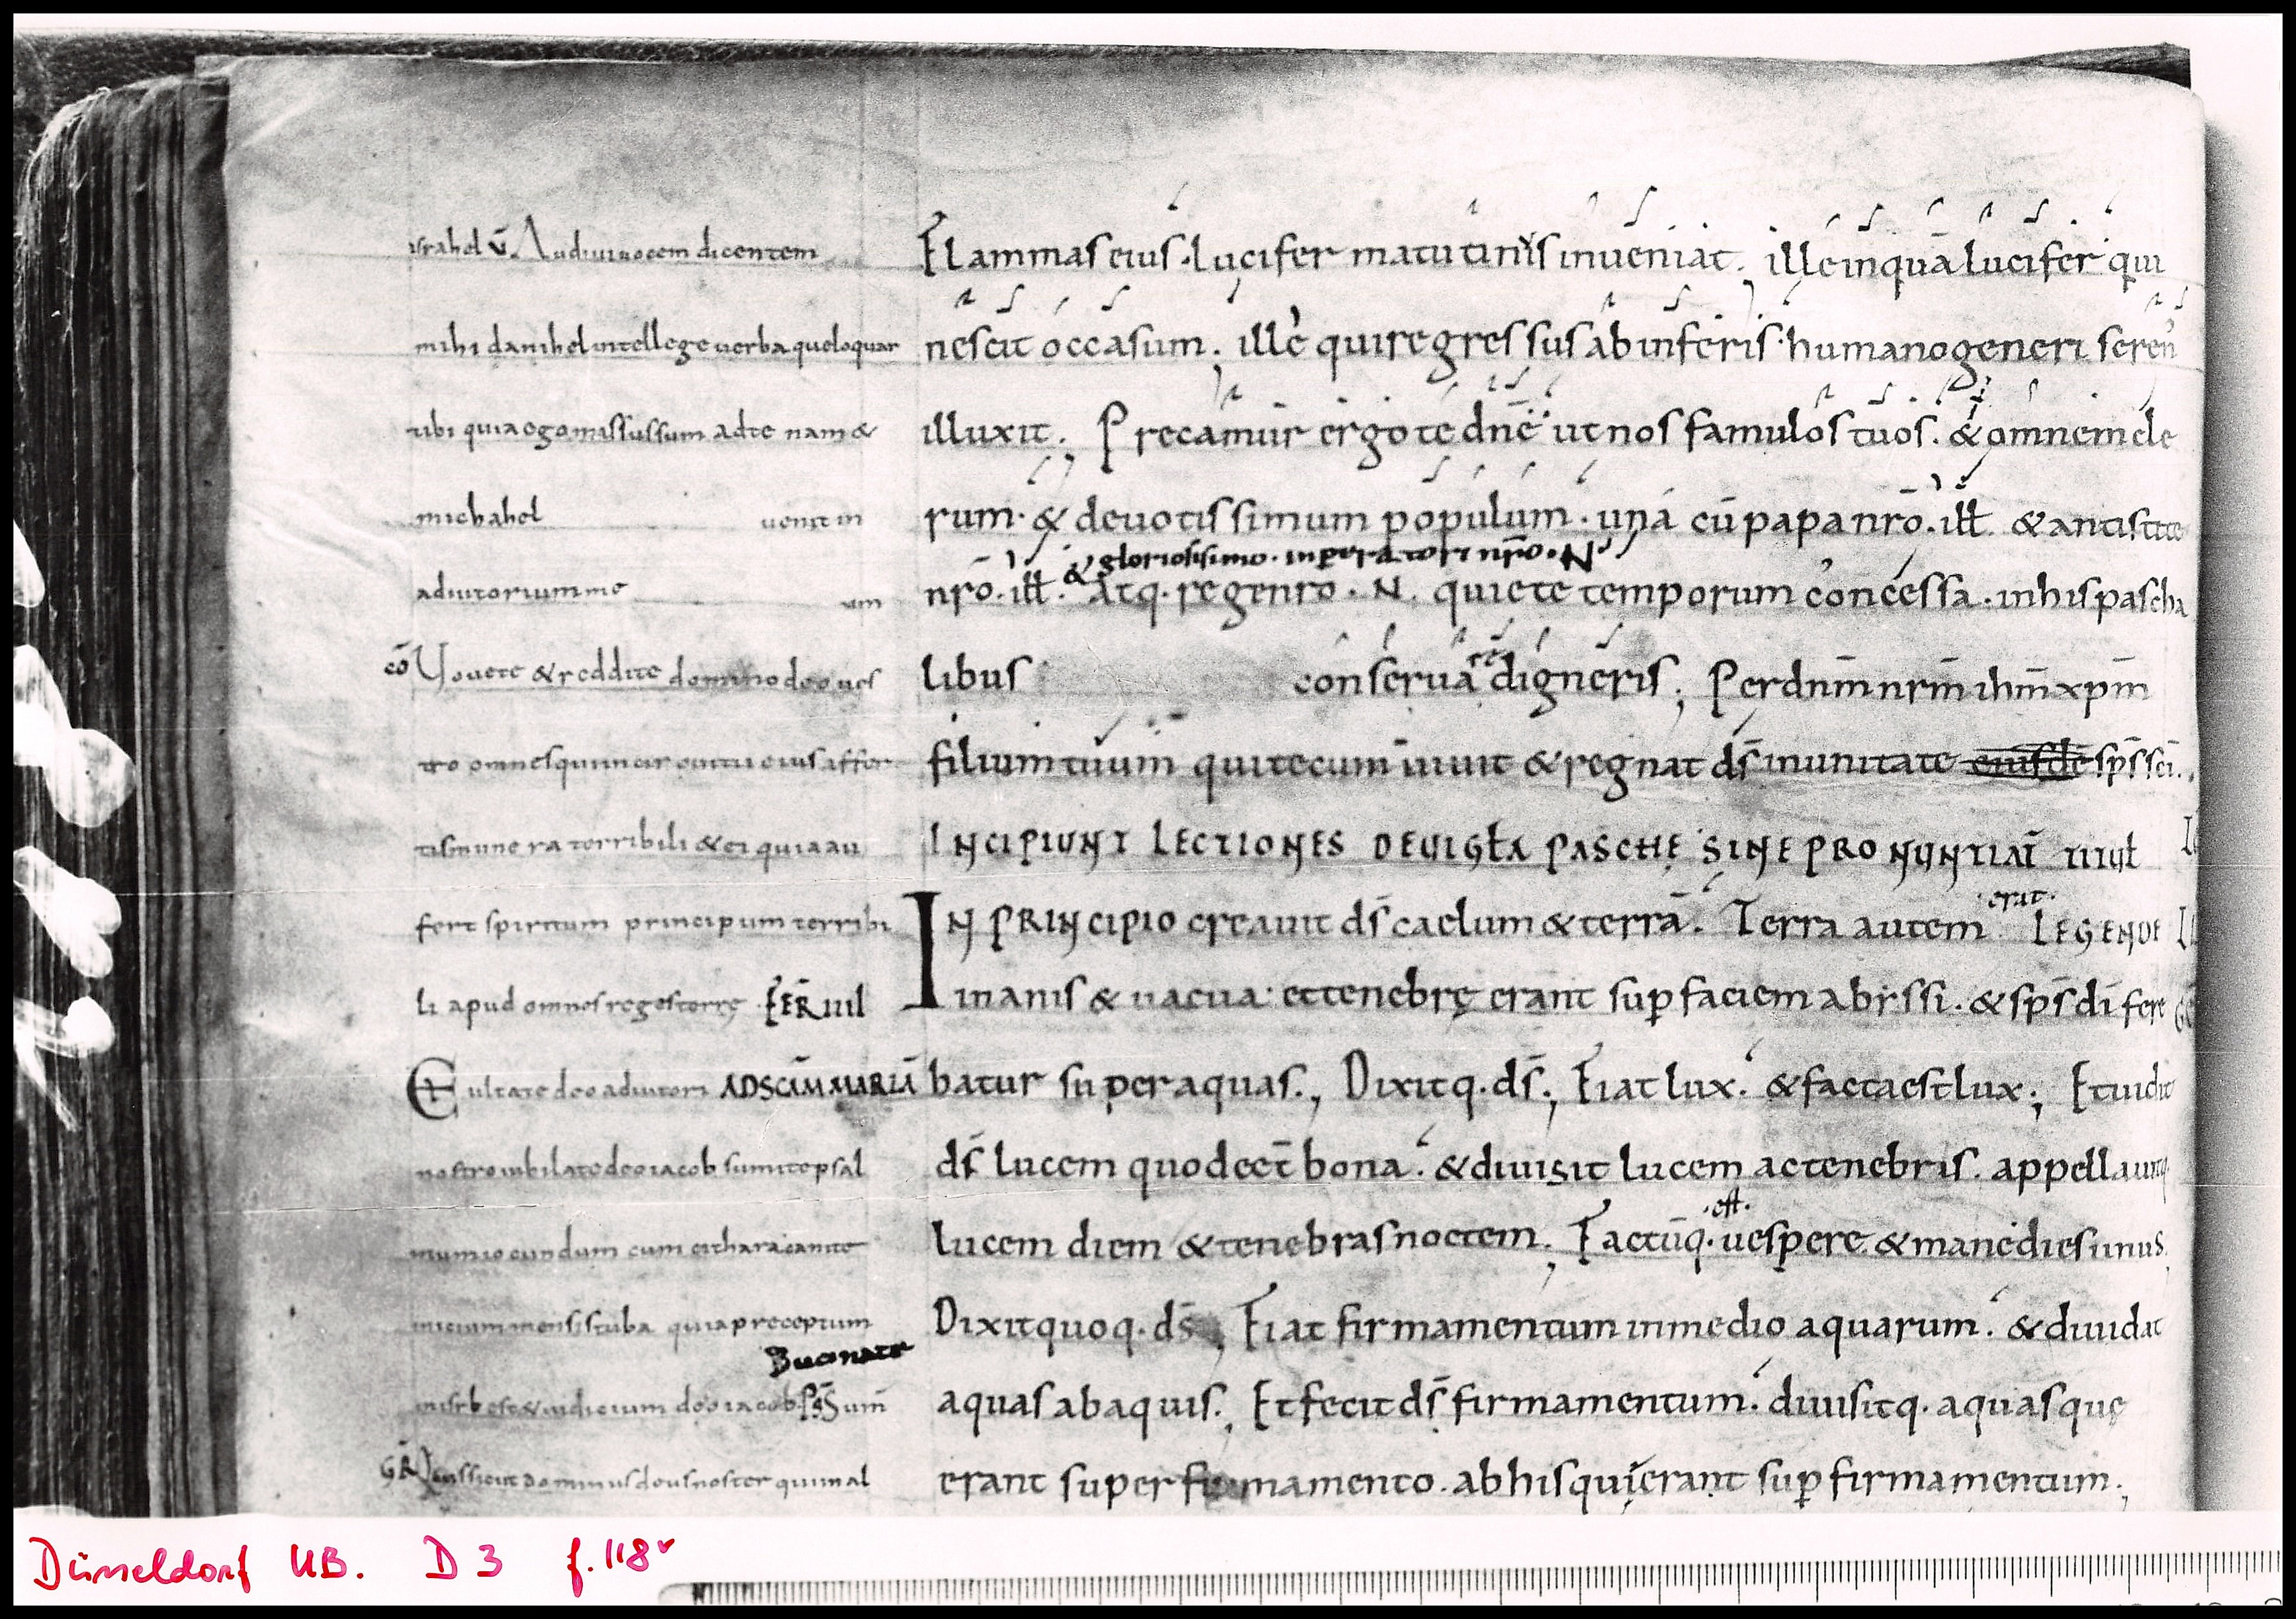 israhel v̄. Audiui uocem dicentem
mihi danihel intellege uerba que loquar
tibi quia ego missus sum ad te nam &
michahel uenit in
adiutorium me um
cō Uouete & reddite domino deo ues
tro omnes qui in circuitu eius affer
tis munera terribili & ei qui a au
fert spiritum principum terribi
li apud omnes reges terre FER IIII
Exultate deo adiutori AD SCĀM MARIĀ
nostro iubilate deo iacob sumite psal
mum iocundum cum cithara canite
inicium mensis tuba quia preceptum
Bucinate
in isrł est & iudicium deo iacob PS̄ um̄
GR̄ Quis sicut dominus deus noster qui in al
Flammas eius · lucifer matutinus inueniat. ille inquā lucifer qui
nescit occasum. ille qui regressus ab inferis · humano generi seren'
illuxit. Precamur ergo te dn̄e ut nos famulos tuos. & omnem cle
rum · & deuotissimum populum · una cū papa nrō. iłł. & antistite
& gloriosissimo · inperatori nr̄o · N
nrō. iłł. Atq. rege nrō. N. quiete temporum concessa. in his pascha
libus conserua re digneris; Per dnm̄ nrm̄ ihm̄ xpm̄
filium tuum qui tecum uiuit & regnat ds̄ in unitate eiusdē sps̄ sci.
INCIPIUNT LECTIONES DE UIGŁA PASCHE SINE PRONUNTIAT̄ IIII
IN PRINCIPIO creauit ds̄ caelum & terrā. Terra autem erat. LEGENDE
inanis & uacua: et tenebrę erant sup faciem abissi. & sps̄ di fere
batur super aquas., Dixitq. ds̄; Fiat lux. & facta est lux; Et uidit
ds̄ lucem quod eēt bona. & diuisit lucem ac tenebris. appellauitq.
lucem diem & tenebras noctem; Factūq. est. uespere & mane dies unus.
Dixit quoq. ds̄; Fiat firmamentum in medio aquarum. & diuidat
aquas ab aquis., Et fecit ds̄ firmamentum. diuisitq. aquas quę
erant super firmamento. ab his qui erant sup firmamentum.;
Düsseldorf UB. D 3 f. 118ᵛ